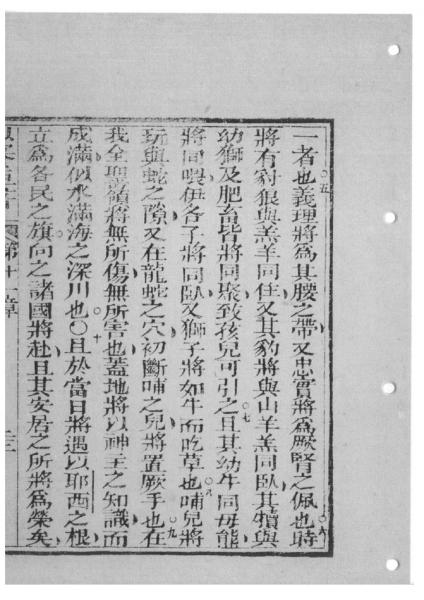 一者也五義理將爲其腰之帶又忠實將爲厥腎之佩也六時
將有豺狼與羔羊同住又其豹將與山羊羔同臥其犢與
幼獅及肥畜皆將同聚致孩兒可引之七且其幼牛同母熊
將同喂伊各子將同臥又獅子將如牛而吃草也八哺兒將
玩與蛇之隙又在龍蛇之穴初斷哺之兒將置厥手也九在
我全聖嶺將無所傷無所害也蓋地將以神主之知識而
成滿似水滿海之深川也〇十且於當日將遇以耶西之根
立爲各民之旗向之諸國將赴且其安居之所將爲榮矣
第十一章
三